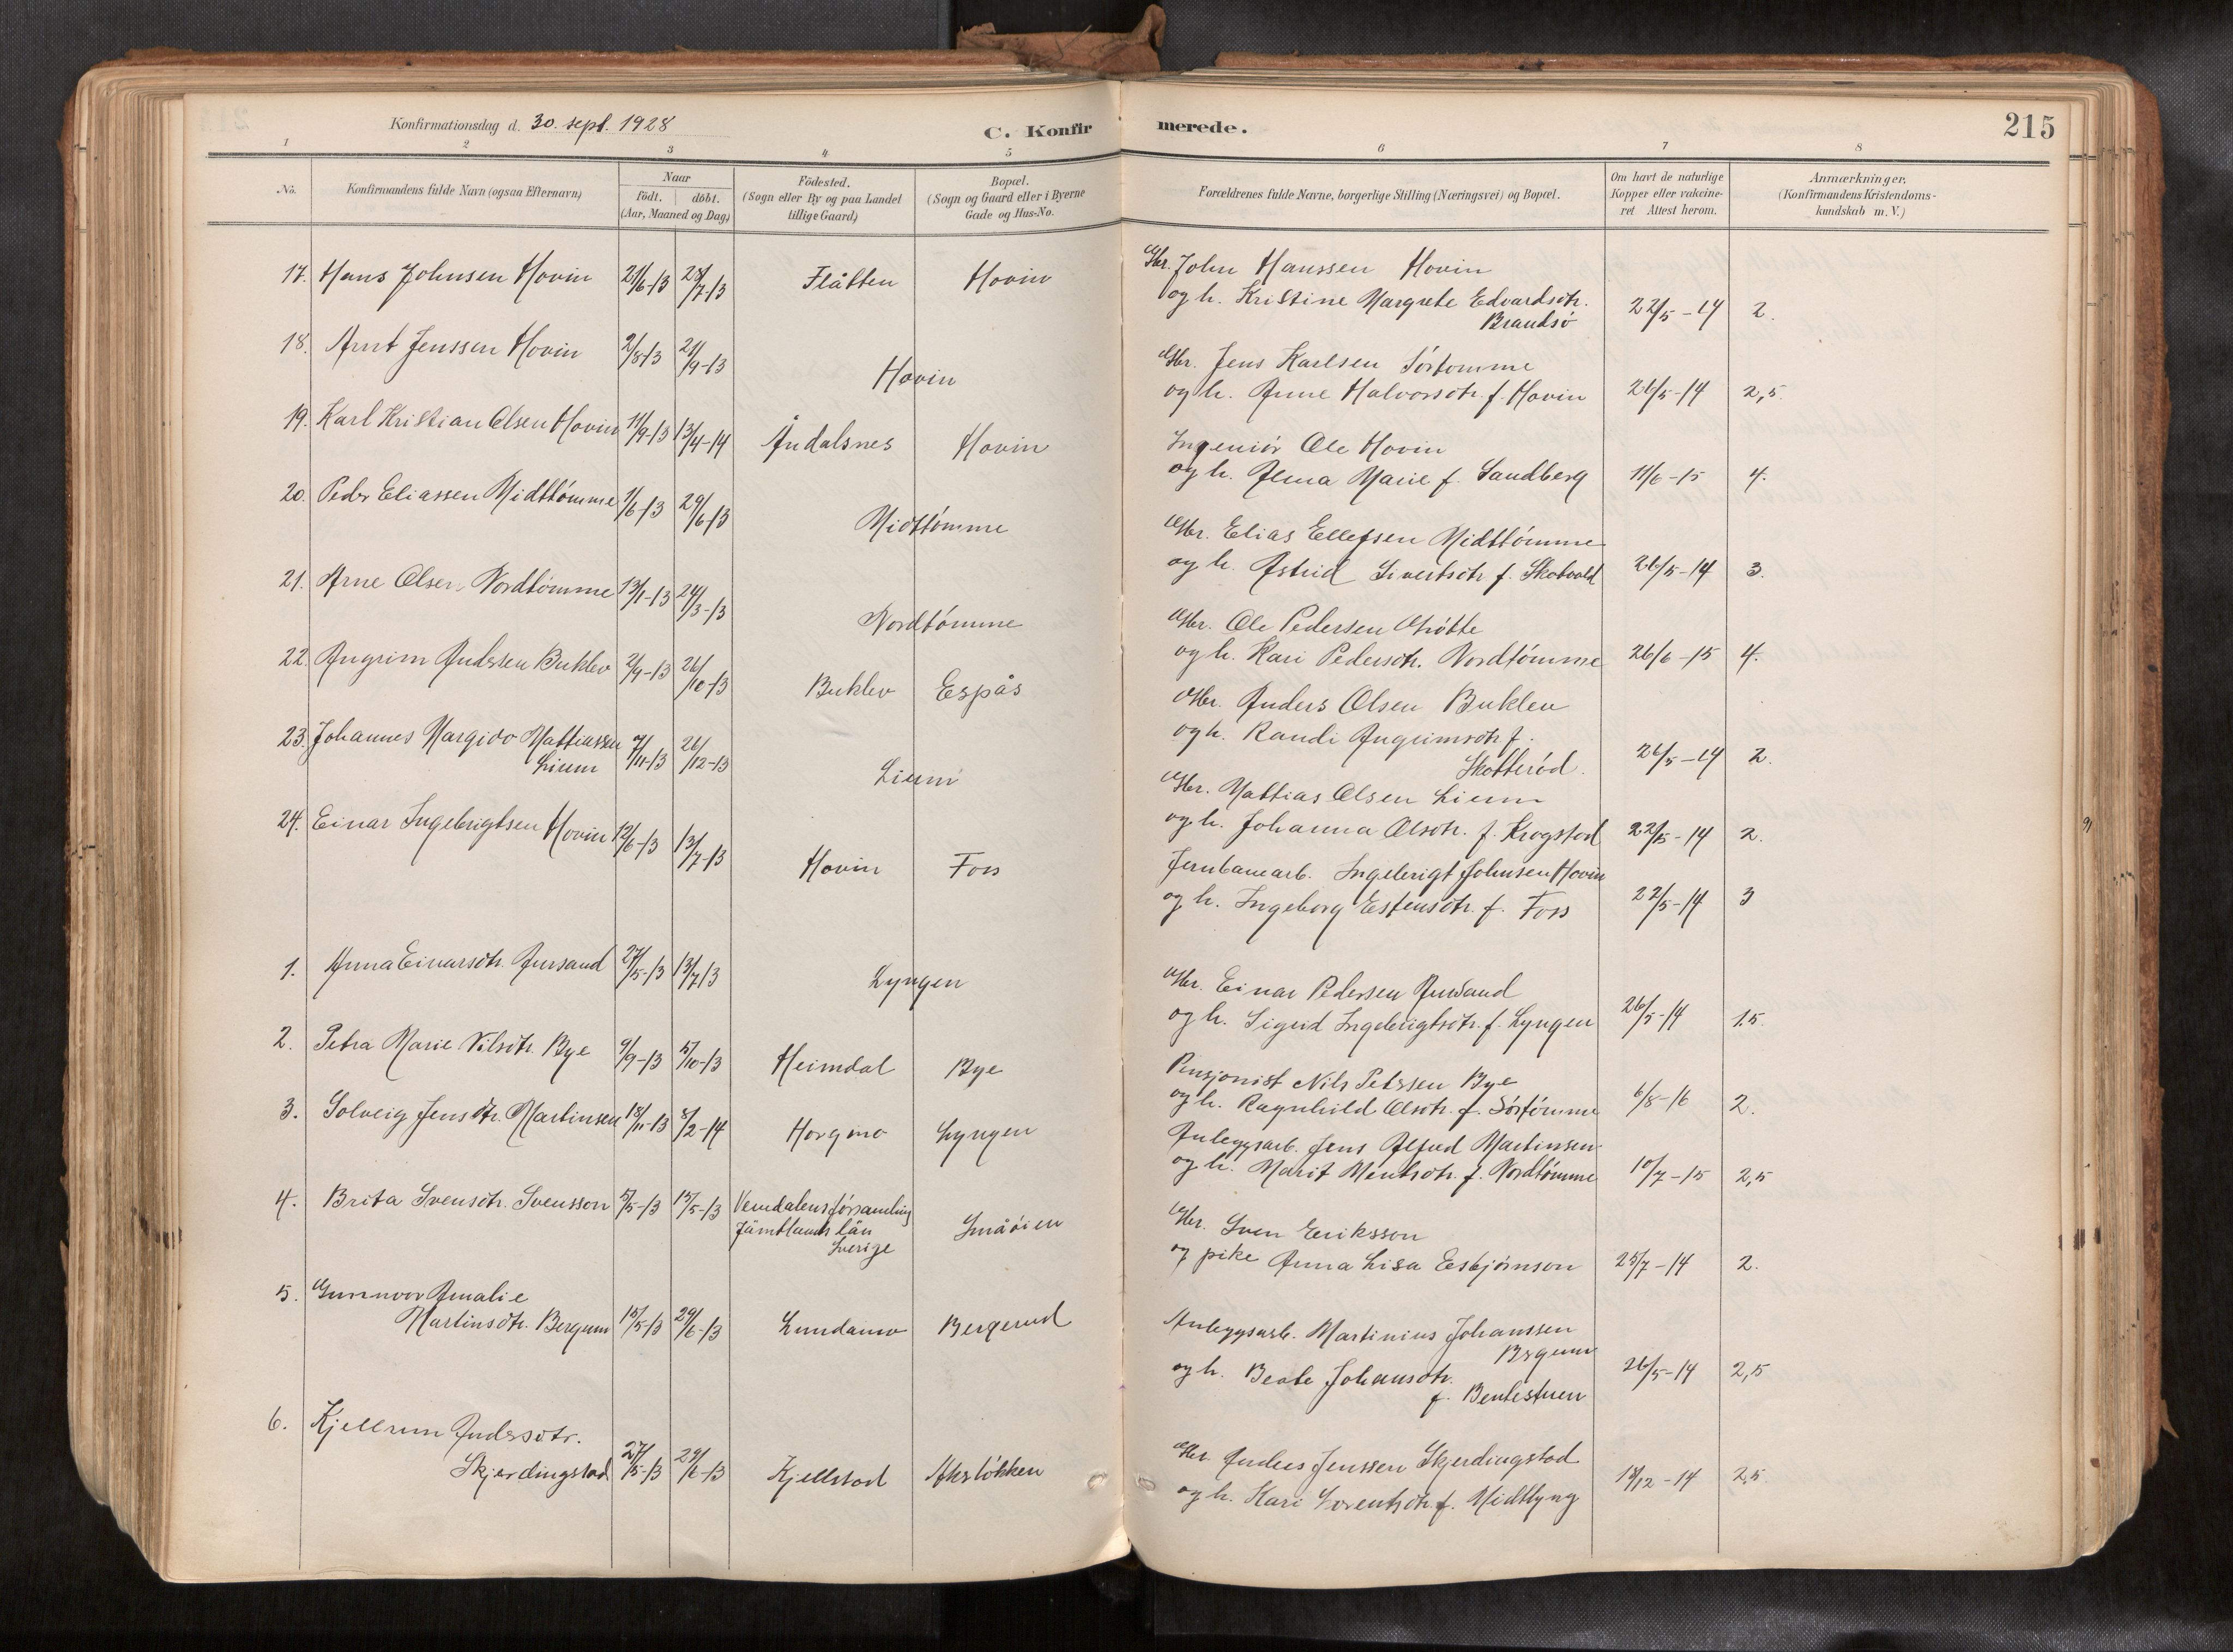 Konfirmationsdag d. 30. sept. 1928
C. Konfirmerede.
215
1 2 3 4 5 6 7 8
No.
Konfirmandens fulde Navn (ogsaa Efternavn)
Naar
födt. döbt.
(Aar, Maaned og Dag)
Födested.
(Sogn eller By og paa Landet
tillige Gaard)
Bopæl.
(Sogn og Gaard eller i Byerne
Gade og Hus-No.
Forældrenes fulde Navne, borgerlige Stilling (Næringsvei) og Bopæl.
Om havt de naturlige
Kopper eller vakcine-
ret Attest herom.
Anmærkninger,
(Konfirmandens Kristendoms-
kundskab m. V.)
17. Hans Johnsen Hovin 21/6-13 28/7-13 Flåtten Hovin
Gbr. John Hanssen Hovin
og h. Kristine Margrete Edvardsdtr.
Brandsø 22/5-14 2.
18. Arnt Jenssen Hovin 2/8-13 21/9-13 Hovin
Gbr. Jens Karlsen Sörtömme
og h. Anne Halvorsdtr. f. Hovin 26/5-14 2,5.
19. Karl Kristian Olsen Hovin 11/9-13 13/4-14 Åndalsnes Hovin
Ingeniör Ole Hovin
og h. Alma Marie f. Sandberg 11/6-15 4.
20. Peder Eliassen Midttömme 1/6-13 29/6-13 Midttömme
Gbr. Elias Ellefsen Midttömme
og h. Astrid Sivertsdtr. f. Skotvold 26/5-14 3.
21. Arne Olsen Nordtömme 13/1-13 24/3-13 Nordtömme
Gbr. Ole Pedersen
og h. Kari Pedersdtr. Nordtömme 26/6-15 4.
22. Angrim Andersen Buklev 2/9-13 26/10-13 Buklev Espås
Gbr. Anders Olsen Buklev
og h. Randi Angrimsdtr. f.
Skötteröd. 26/5-14 2.
23. Johannes Margido Mattiassen
Lium 7/11-13 26/12-13 Lium
Gbr. Mattias Olsen Lium
og h. Johanna Olsdtr. f. Krogstad 22/5-14 2.
24. Einar Ingebrigtsen Hovin 12/6-13 13/7-13 Hovin Foss
Jernbanearb. Ingebrigt Johnsen Hovin
og h. Ingeborg Estensdtr. f. Foss 22/5-14 3
1. Anna Einarsdtr. Aursand 27/5-13 13/7 13 Lyngen
Gbr. Einar Pedersen Aursand
og h. Sigrid Ingebrigtsdtr. f. Lyngen 26/5-14 1.5.
2. Petra Marie Nilsdtr. Bye 9/9-13 5/10-13 Heimdal Bye
Pensjonist Nils Petersen Bye
og h. Ragnhild Olsdtr. f. Sörtömme 6/8-16 2.
3. Solveig Jensdtr. Martinsen 18/11-13 8/2-14 Horgmo Lyngen
Anleggsarb. Jens Alfred Martinsen
og h. Marit Mentsdtr. f. Nordtömme 10/7-15 2,5
4. Brita Svensdtr. Svensson 5/5-13 15/5-13 Vemdalens församling
Jämtlands län
Sverige
Småöien
Gbr. Sven Eriksson
og pike Anna Lisa Esbjörnson 25/7-14 2.
5. Gunnvor Amalie
Martinsdtr. Bergum 15/5-13 29/6-13 Lundamo Bergerud
Anleggsarb. Martinius Johanssen
Bergum
og h. Beate Johansdtr.
f. Bentestuen 26/5-14 2,5
6. Kjellrun Andersdtr.
Skjerdingstad 27/5-13 29/6-13 Kjellstad Aksløkken
Gbr. Anders Jenssen Skjerdingstad
og h. Kari Lorentsdtr. f. Midtlyng 18/12-14 2,5.
91